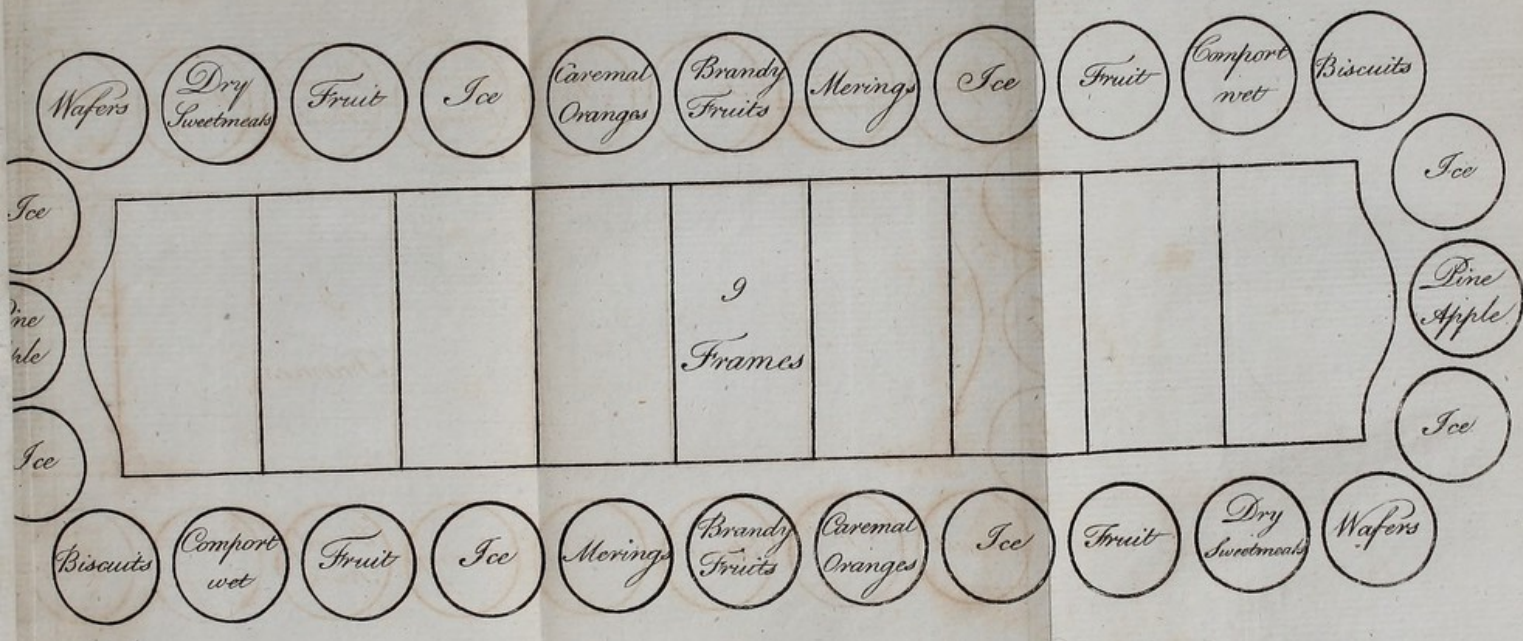 Wafers
Dry
Sweetmeats
Fruit
Ice
Caremal
Oranges
Brandy
Fruits
Merings
Ice
Fruit
Comport
wet
Biscuits
Ice
Ice
ine
ple
Ice
9
Frames
Pine
Apple
Ice
Biscuits
Comport
wet
Fruit
Ice
Merings
Brandy
Fruits
Caremal
Oranges
Ice
Fruit
Dry
Sweetmeats
Wafers